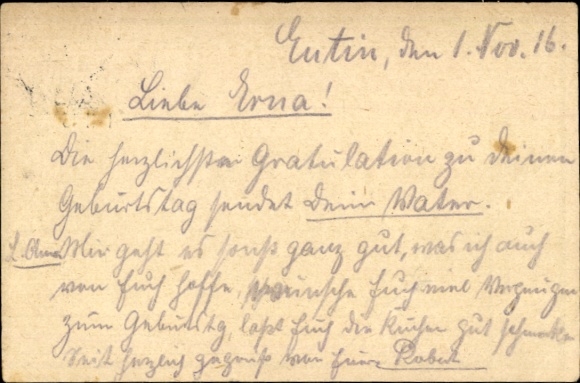 Eutin, den 1. Nov. 16.
Liebe Erna!
Die herzlichsten Gratulation zu deinen
Geburtstag sendet Dein Vater.
L. Mir geht es sonst ganz gut, was ich auch
von Euch hoffe, wünsche Euch viel Vergnügen
zum Geburtstg, laßt Euch die Kuchen gut schmecken
Seit herzlich gegrüß von Eure Robert